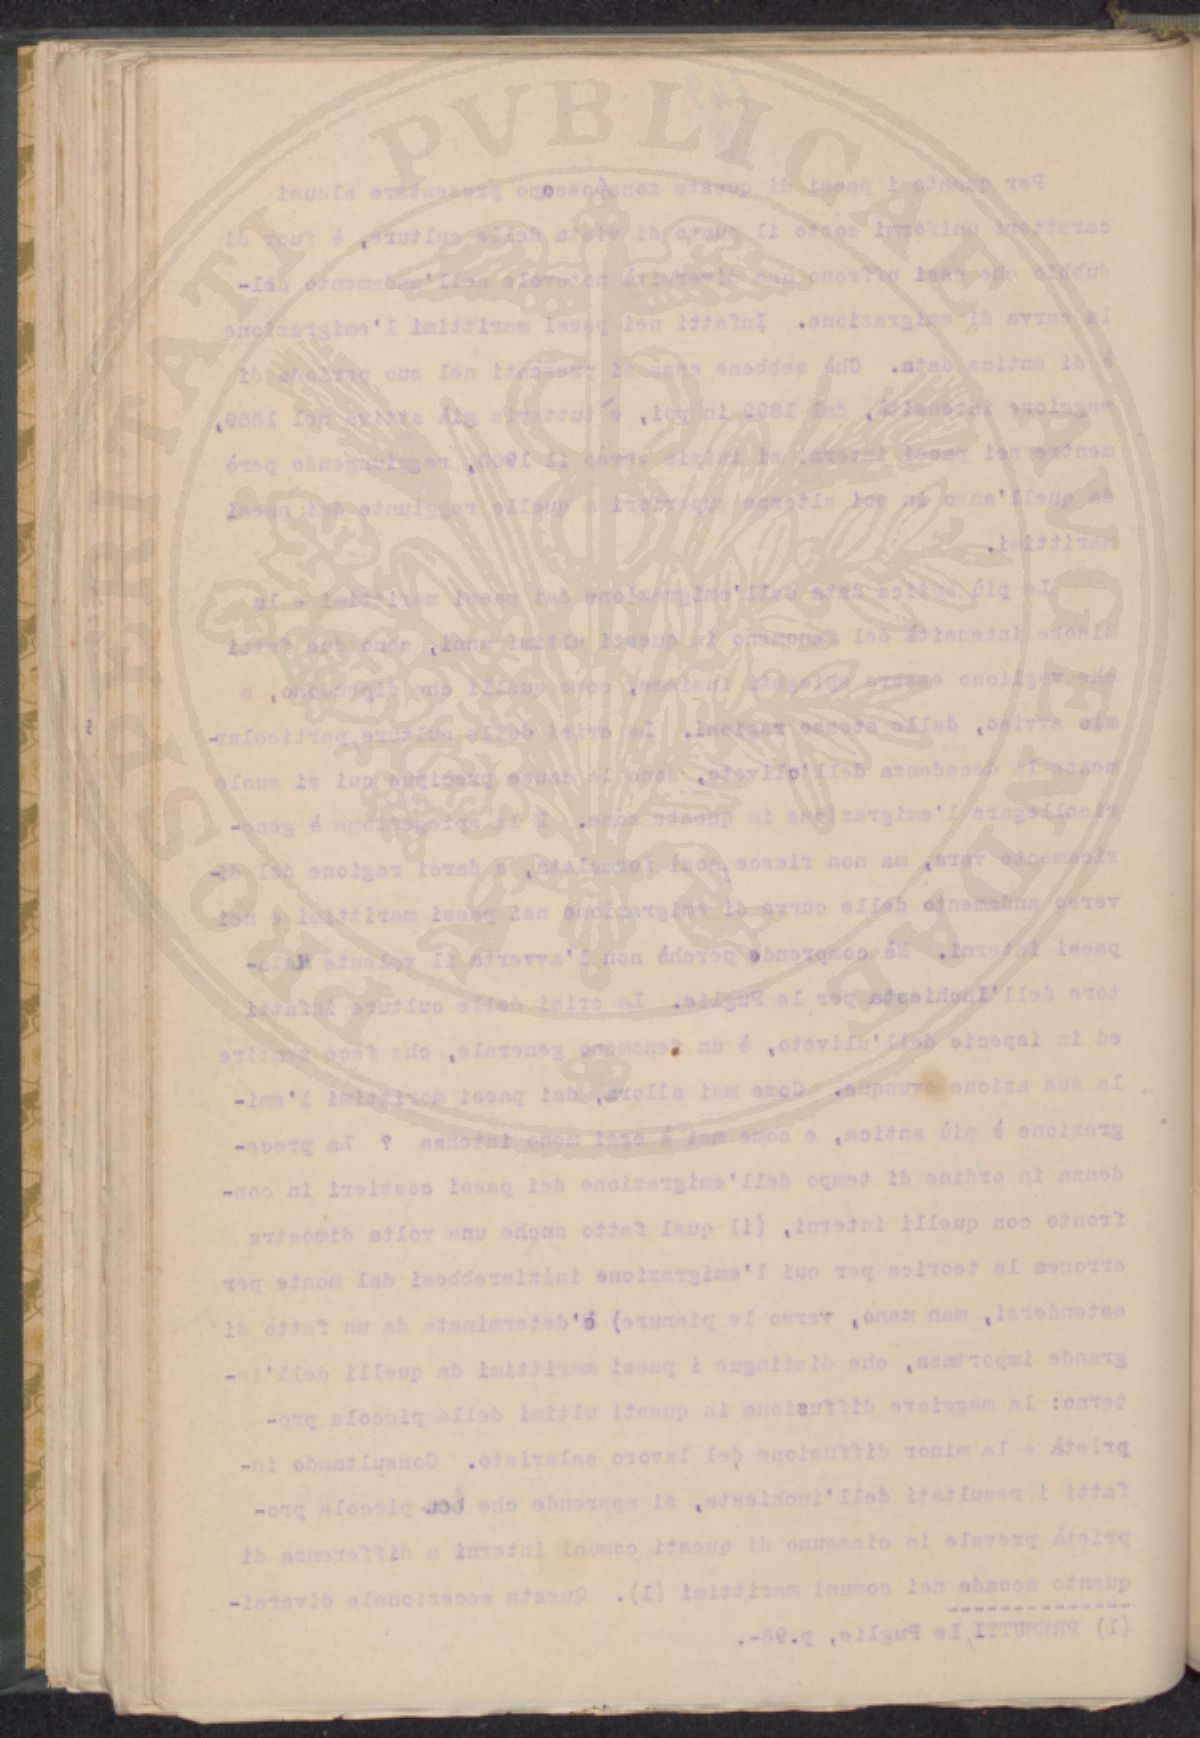 PVBLICAE AVGENDAE PROSPERITATI
Per quanto i paesi di questa zona possono presentare alcuni
caratteri uniformi sotto il punto di vista delle culture, è fuor di
dubbio che essi offrono una diversità notevole nell'andamento del-
la curva di emigrazione. Infatti nei paesi marittimi l'emigrazione
è di antica data. Chè sebbene essa si presenti nel suo periodo di
maggiore intensità, dal 1899 in poi, è tuttavia già attiva nel 1889,
mentre nei paesi interni si inizia verso il 1900, raggiungendo però
da quell'anno in poi altezze superiori a quelle raggiunte dai paesi
marittimi.
La più antica data dell'emigrazione dai paesi marittimi e la
minore intensità del fenomeno in questi ultimi anni, sono due fatti
che vogliono essere spiegati insieme, come quelli che dipendono, a
mio avviso, dalle stesse ragioni. La crisi delle culture particolar-
mente la decadenza dell'oliveto, sono le cause precipue cui si suole
ricollegare l'emigrazione in queste zone. E la spiegazione è gene-
ricamente vera, ma non riesce così formulata, a darci ragione del di-
verso andamento delle curve di emigrazione nei paesi marittimi e nei
paesi interni. Nè comprende perchè non l'avverta il valente Rela-
tore dell'Inchiesta per le Puglie. La crisi delle culture infatti
ed in ispecie dell'uliveto, è un fenomeno generale, che fece sentire
la sua azione ovunque. Come mai allora, dai paesi marittimi l'emi-
grazione è più antica, e come mai è oggi meno intensa ? La prece-
denza in ordine di tempo dell'emigrazione dei paesi costieri in con-
fronto con quelli interni, (il qual fatto anche una volta dimostra
erronea la teorica per cui l'emigrazione inizierebbesi dal monte per
estendersi, man mano, verso le pianure) è determinato da un fatto di
grande importanza, che distingue i paesi marittimi da quelli dell'in-
terno: la maggiore diffusione in questi ultimi della piccola pro-
prietà e la minor diffusione del lavoro salariato. Consultando in-
fatti i resultati dell'inchiesta, si apprende che la piccola pro-
prietà prevale in ciascuno di questi comuni interni a differenza di
quanto accade nei comuni marittimi (1). Questa eccezionale diversi-
(1) PRESUTTI, Le Puglie, p.98-.